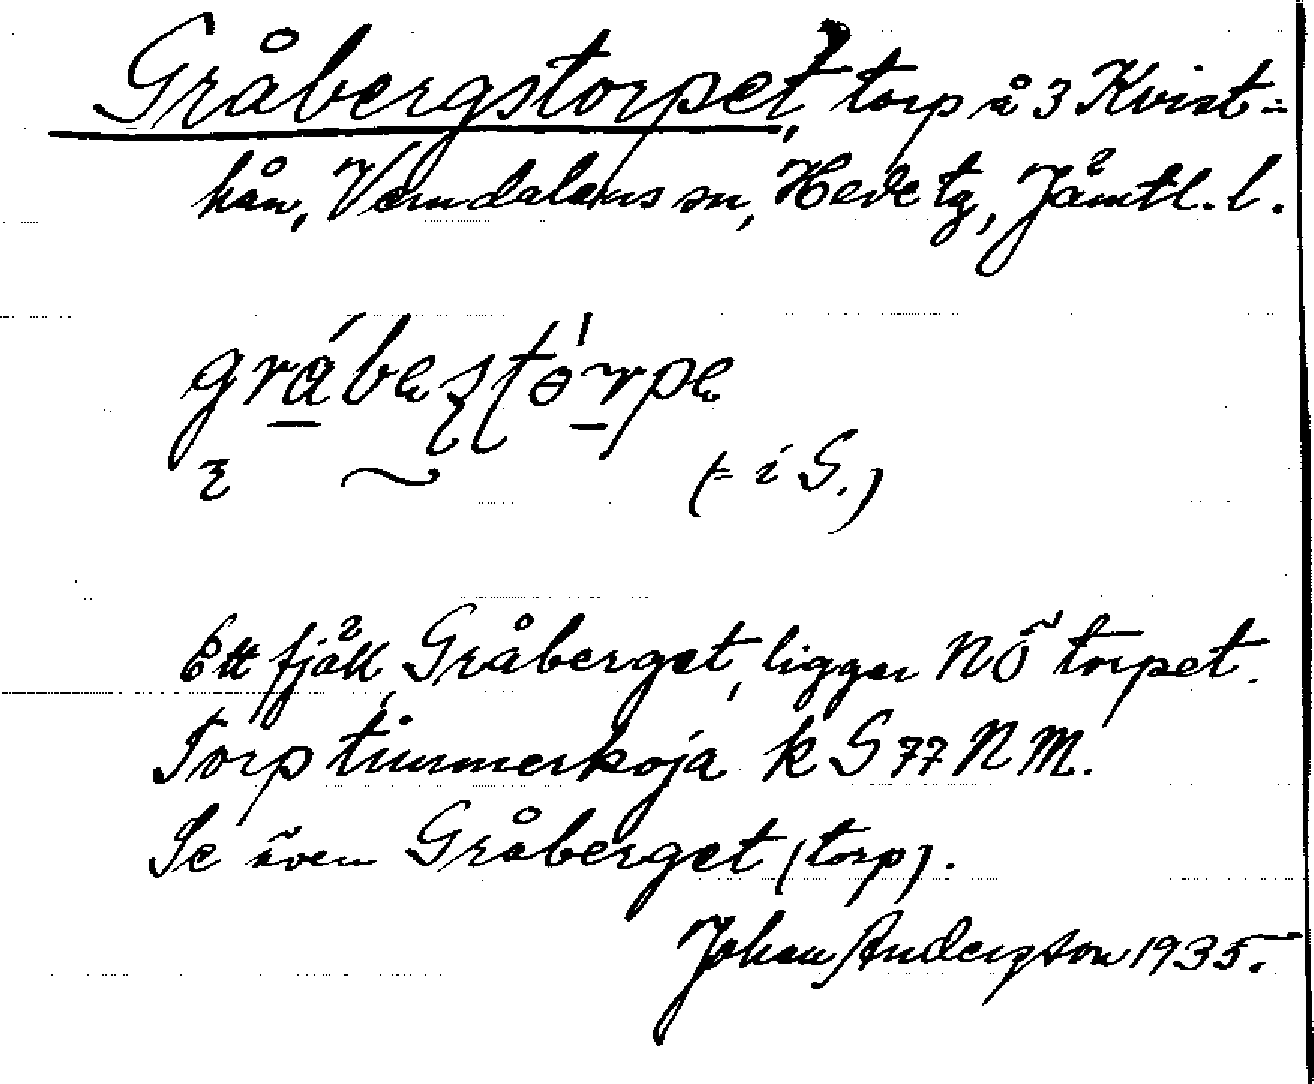 Gråbergstorpet, torp å 3 Kvist-
hån, Vemdalens sn, Hede tg, Jämtl. l.
(= i S.)
Ett fjäll, Gråberget, ligger NÖ torpet.
Torp timmerkoja k S 77 N M.
Se även Gråberget (torp).
Johan Anderzson 1935.